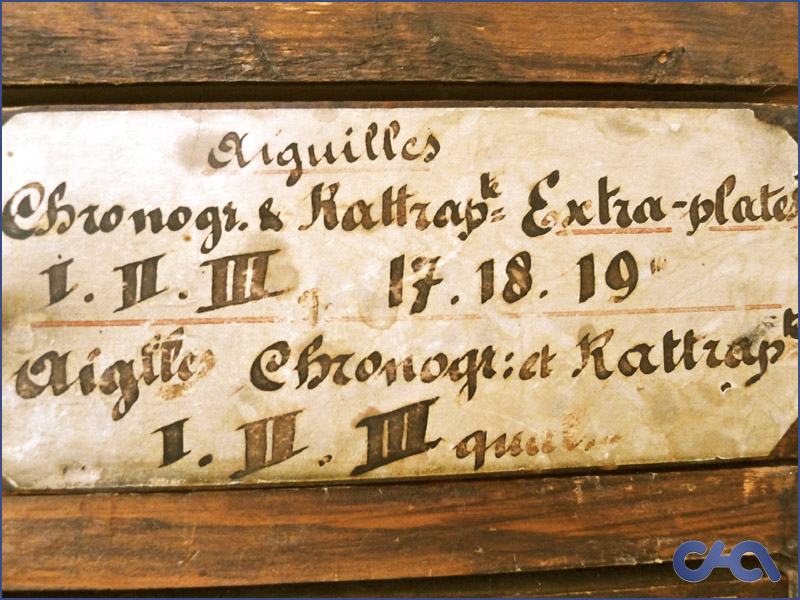 Aiguilles
Chronogr. & Rattrap.te Extra-plates
I. II. III q. 17. 18. 19'''
Aiglles Chronogr: et Rattrapte
I. II. III
cha